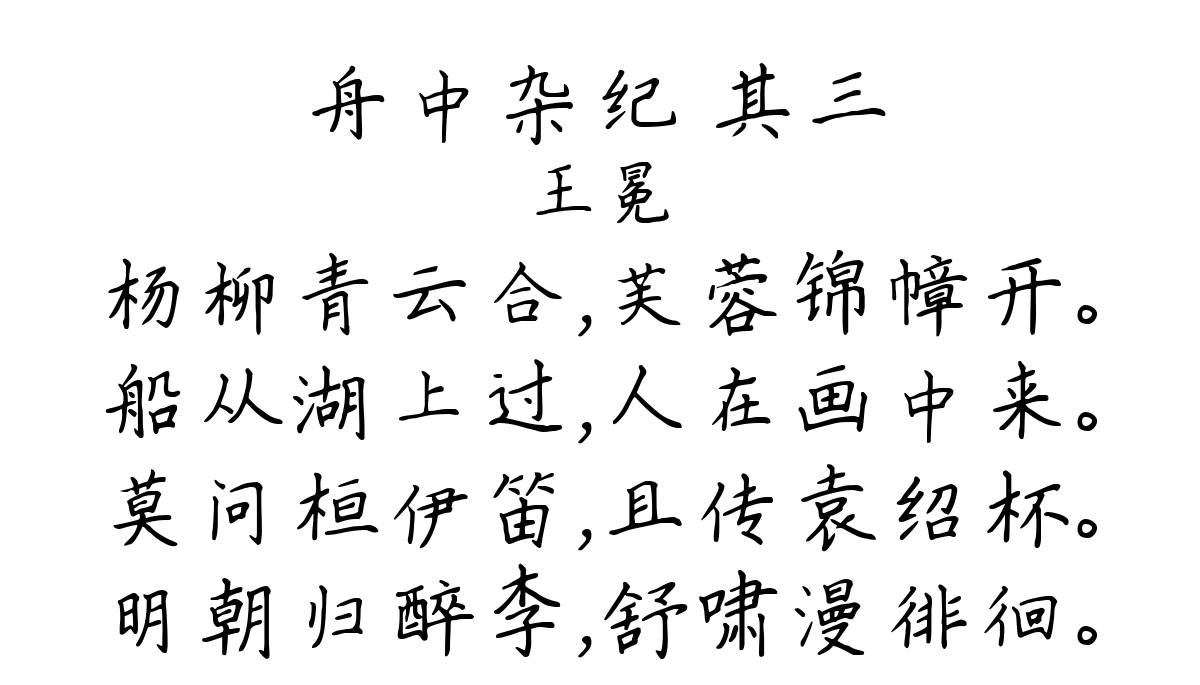 舟中杂纪 其三
王冕
杨柳青云合,芙蓉锦幛开。
船从湖上过,人在画中来。
莫问桓伊笛,且传袁绍杯。
明朝归醉李,舒啸漫徘徊。